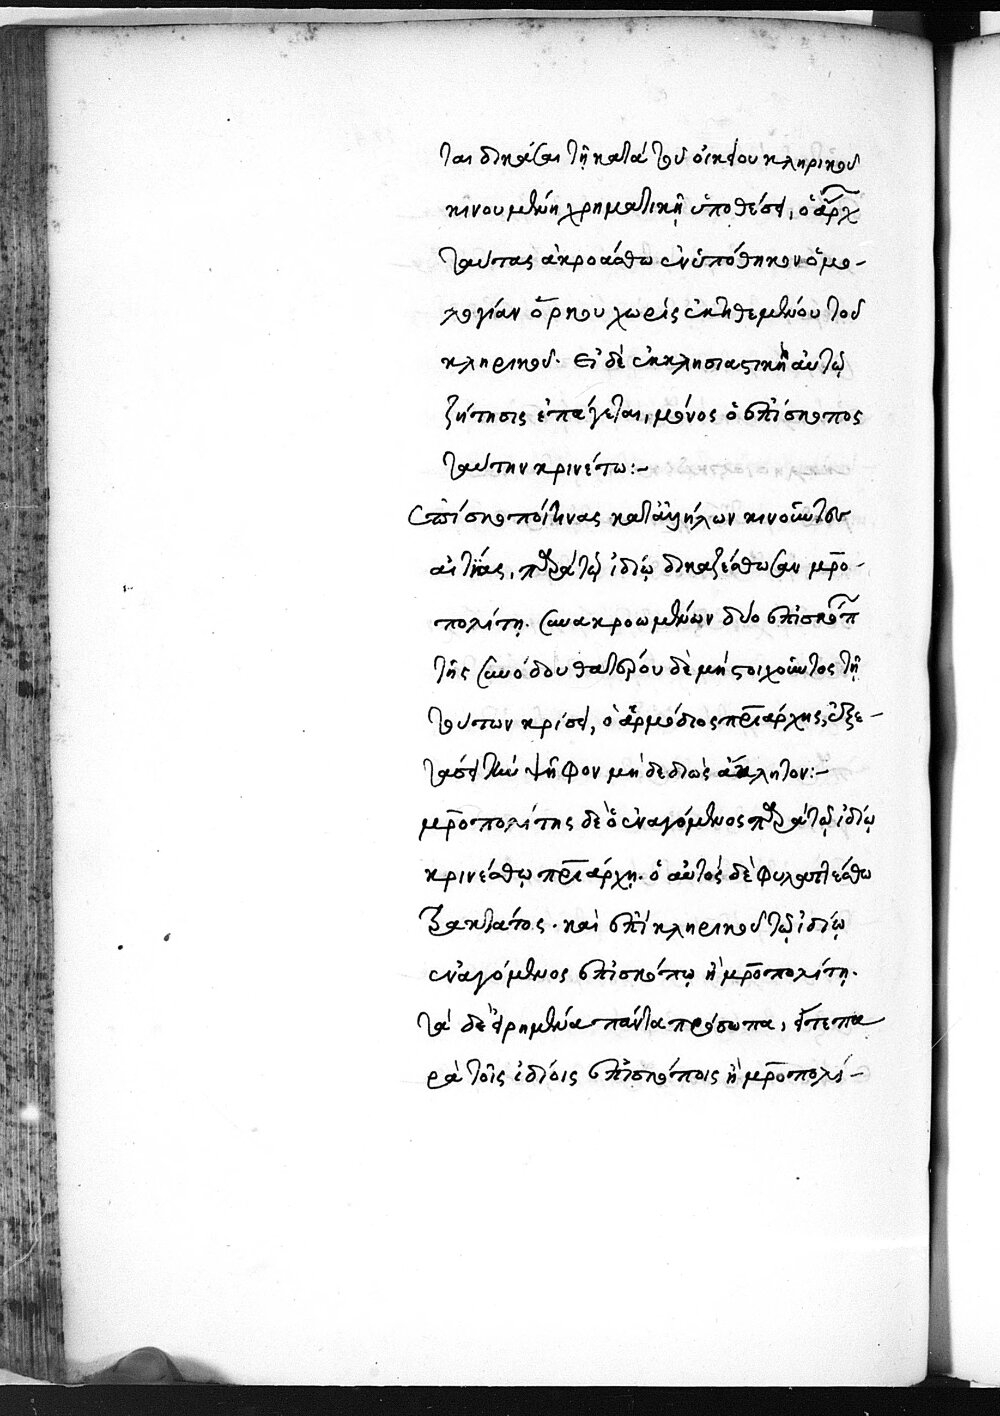 ται δικάσαι τῇ κατὰ τοῦ οἰκείου κληρικοῦ
κινουμένη χρηματικῇ ὑποθέσει, ὁ ἄρχ
ταύτας ἀκροάσθω ἐνυπόθηκον ὁμο-
λογίαν ὅρκου χωρὶς ἐκτιθεμένου τοῦ
κληρικοῦ. Εἰ δὲ ἐκκλησιαστικὴ αὐτῷ
ζήτησις ἐπάγεται, μόνος ὁ ἐπίσκοπος
ταύτην κρινέτω:-
ἐπίσκοποί τινας κατ' ἀλλήλων κινοῦντες
αἰτίας, παρὰ τῷ ἰδίῳ δικαζέσθωσαν μρο-
πολίτῃ. συνακροωμένων δύο ἐπισκόπ
τῆς συνόδου θατέρου δὲ μὴ στοιχοῦντος τῇ
τούτων κρίσει, ὁ ἁρμόδιος πριάρχης, ἐξε-
τάσει τὴν ψῆφον μὴ δεδιὼς ἔκκλητον:-
μροπολίτης δὲ ὁ ἐναγόμενος παρὰ τῷ ἰδίῳ
κρινέσθω πριάρχῃ. ὁ αὐτὸς δὲ φυλαττέσθω
τακτος. καὶ ἐπὶ κληρικοῦ τῷ ἰδίῳ
ἐναγόμενος ἐπισκόπῳ ἢ μροπολίτῃ.
τὰ δὲ εἰρημένα πάντα πρόσωπα, εἴτε πα
ρὰ τοῖς ἰδίοις ἐπισκόποις ἢ μροπολί-